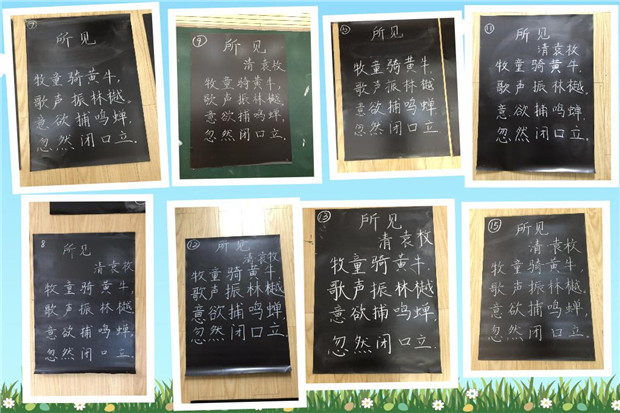 ⑦
所见
牧童骑黄牛,
歌声振林樾。
意欲捕鸣蝉,
忽然闭口立.
⑨
所见
清袁枚
牧童骑黄牛,
歌声振林樾。
意欲捕鸣蝉,
忽然闭口立.
所见
牧童骑黄牛,
歌声振林樾.
意欲捕鸣蝉,
忽然闭口立.
⑪
所见
清袁枚
牧童骑黄牛,
歌声振林樾
意欲捕鸣蝉,
忽然闭口立.
8
所见
清袁枚
牧童骑黄牛,
歌声振林樾
意欲捕鸣蝉,
忽然闭口立.
⑫
所见
清袁枚
牧童骑黄牛,
歌声振林樾
意欲捕鸣蝉,
忽然闭口立.
⑬
所见
清袁枚
牧童骑黄牛,
歌声振林樾
意欲捕鸣蝉,
忽然闭口立.
⑮
所见
清袁枚
牧童骑黄牛,
歌声振林樾
意欲捕鸣蝉,
忽然闭口立.